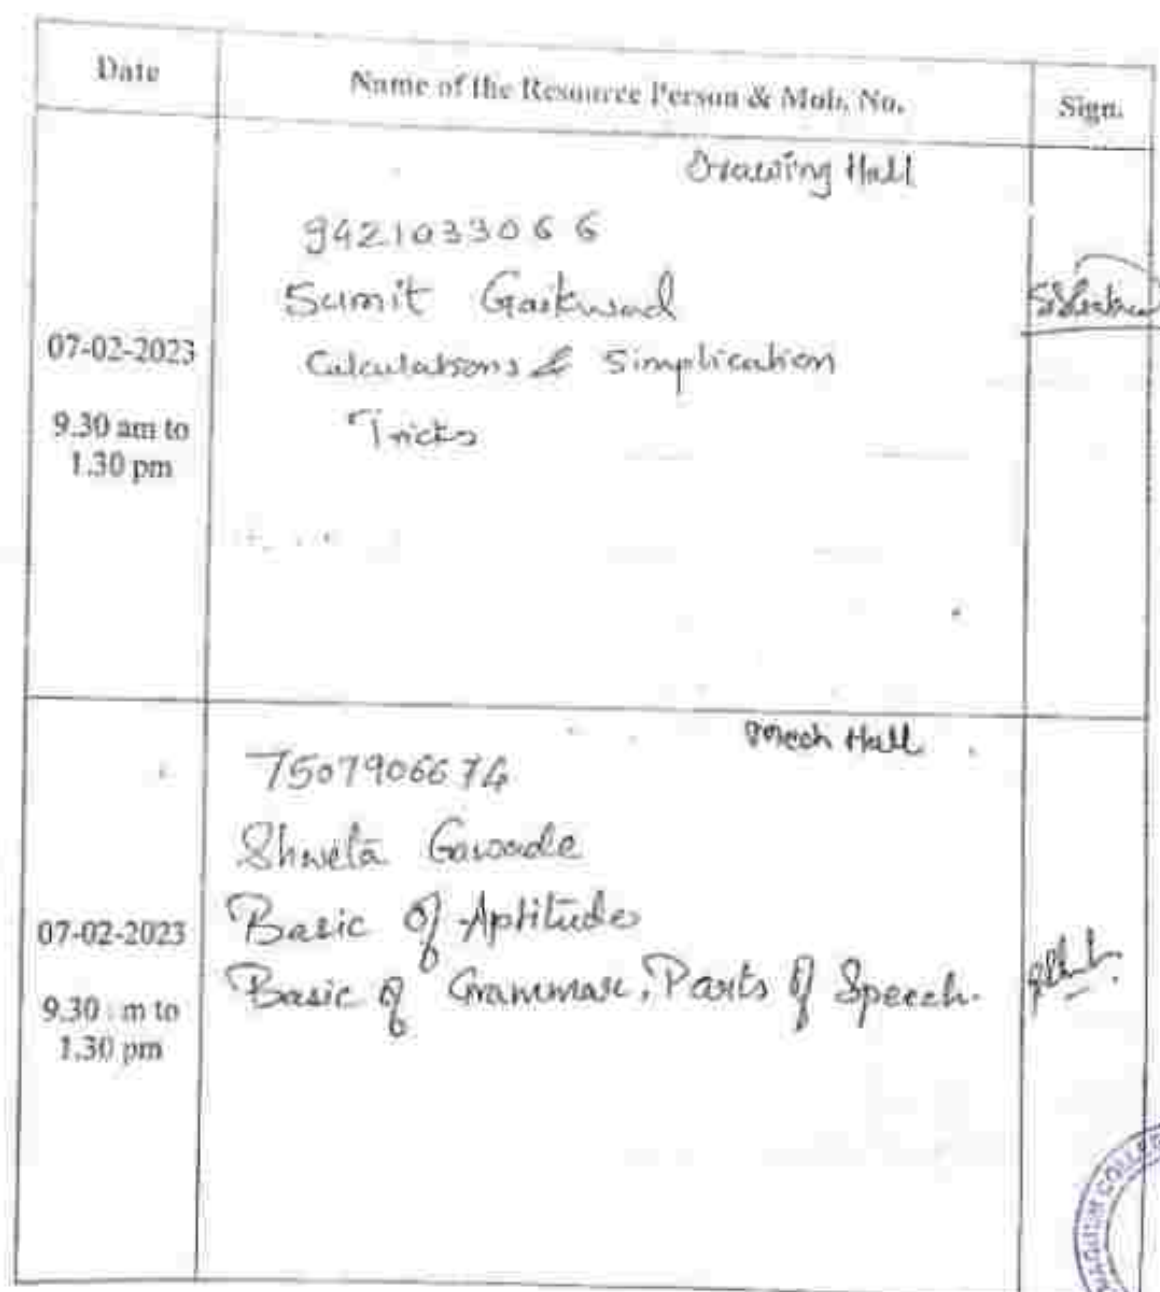 Date
Name of the Resource Person & Mob. No.
Sign.
Drawing Hall
9421033066
Sumit Gaikwad
Calculations & Simplication
Tricks
07-02-2023
9.30 am to
1.30 pm
Mech Hall
7507906674
Shweta Gawade
Basic of Aptitude
Basic of Grammar, Parts of Speech.
07-02-2023
9.30 m to
1.30 pm